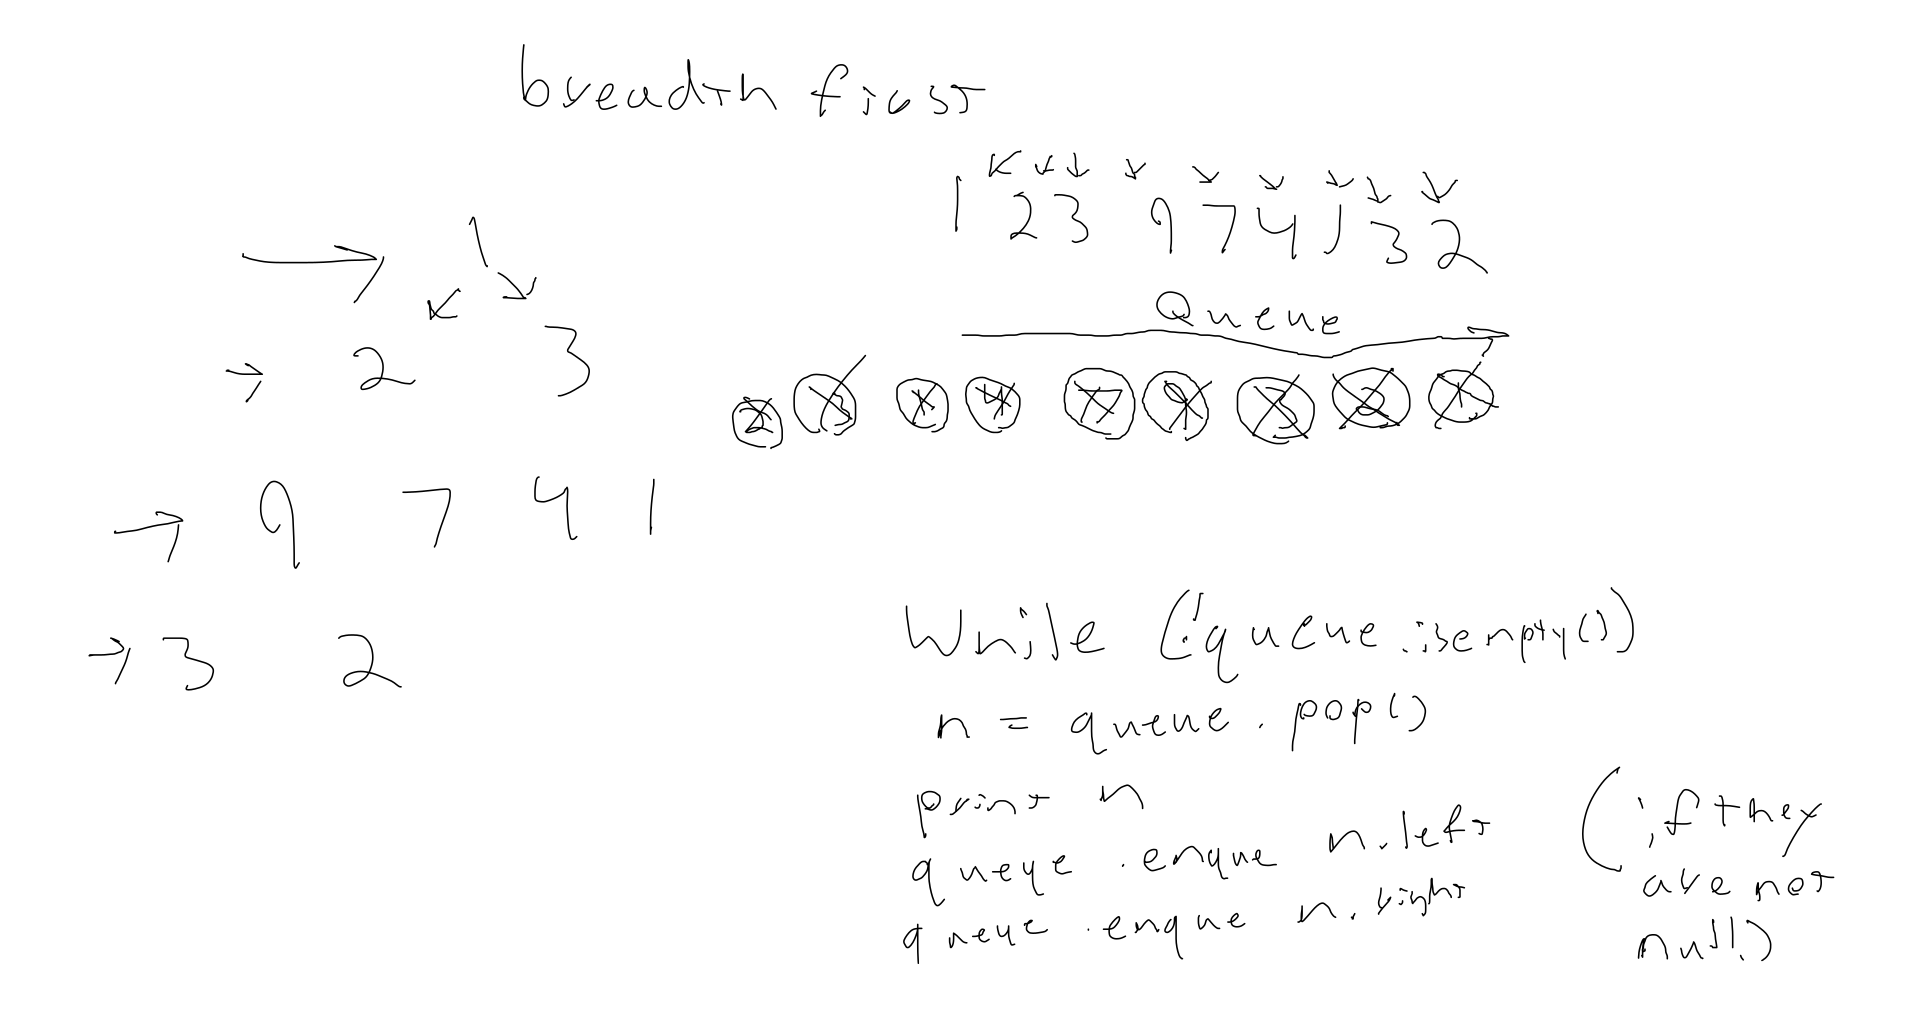 breadth first
1 2 3 9 7 4 1 3 2
Queue
2 3 1 4 7 9 3 2 1
1
2 3
9 7 4 1
3 2
While (!queue.isempty())
n = queue.pop()
print n
queue.enque n.left
queue.enque n.right
(if they
are not
null)